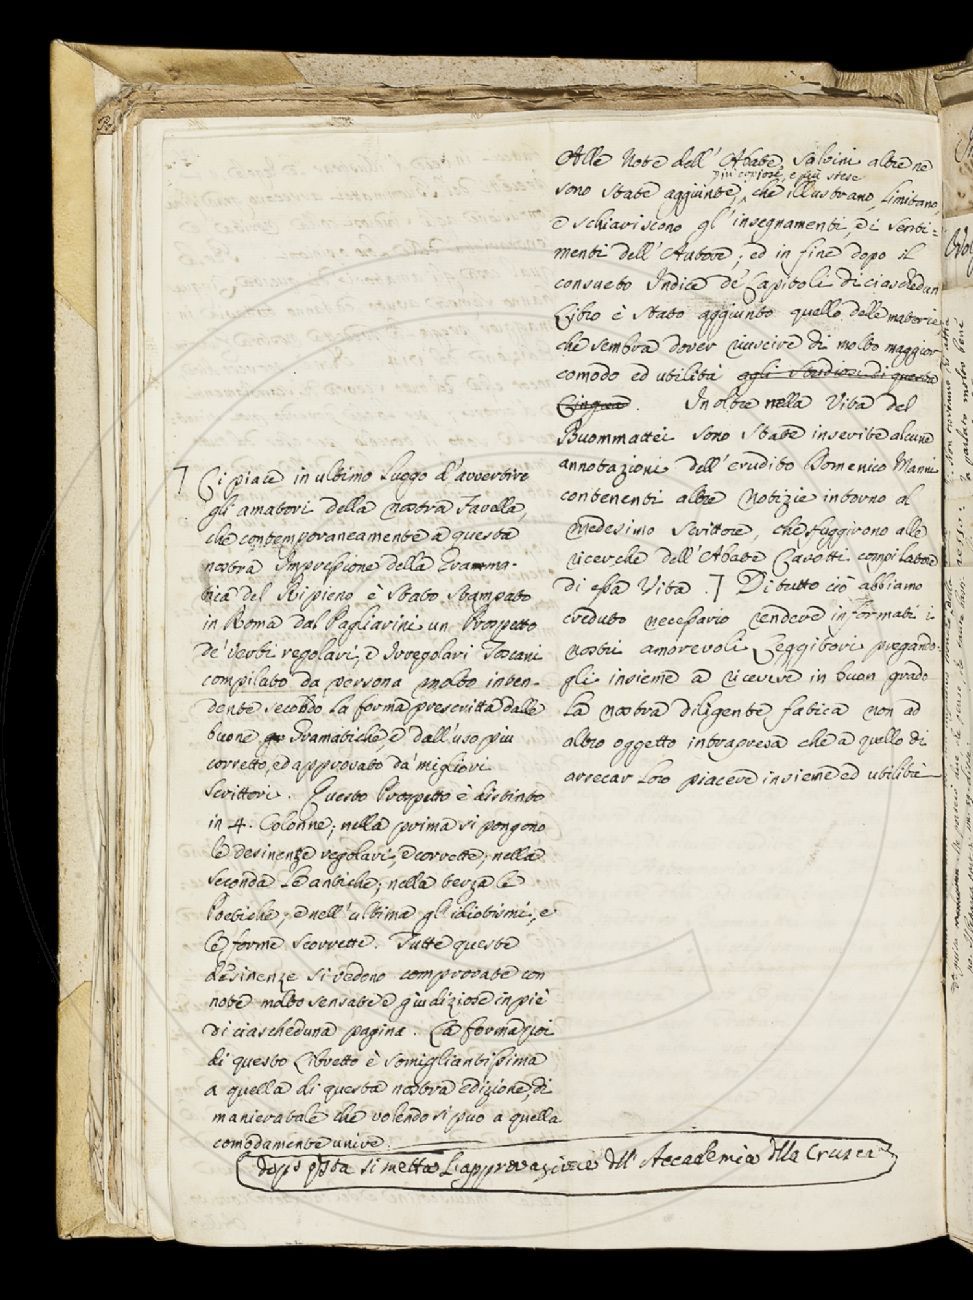 Alle Note dell'Abate Salvini altre ne
più copiose, e più stese
sono state aggiunte, che illustrano, limitano,
e schiariscono gl'insegnamenti, e i senti=
menti dell'Autore; ed in fine dopo il
consueto Indice de' Capitoli di ciaschedun
Libro è stato aggiunto quello delle materie
che sembra dover riuscire di molto maggior
comodo ed utilità agli studiosi di questa
Lingua. Inoltre nella Vita del
Buommattei sono state inserite alcune
annotazioni dell'erudito Domenico Manni
contenenti altre notizie intorno al
medesimo Scrittore, che sfuggirono alle
ricerche dell'Abate Cavotti compilatore
di essa Vita. ] Di tutto ciò abbiamo
creduto necessario rendere informati i
nostri amorevoli Leggitori pregando-
gli insieme a ricevere in buon grado
la nostra diligente fatica non ad
altro oggetto intrapresa che a quello di
arrecar loro piacere insieme ed utilità
] Ci piace in ultimo luogo d'avvertire
gli amatori della nostra favella,
che contemporaneamente a questa
nostra Impressione della Gramma-
tica del Ripieno è stato stampato
in Roma dal Pagliarini un Prospetto
de' verbi regolari, e Irregolari Toscani
compilato da persona molto inten-
dente secondo la forma prescritta dalle
buone Gramatiche, e dall'uso più
corretto, ed approvato da' migliori
Scrittori. Questo Prospetto è distinto
in 4. Colonne; nella prima si pongono
le desinenze regolari, e corrette; nella
seconda le antiche; nella terza le
Poetiche; e nell'ultima gl'idiotismi, e
le forme scorrette. Tutte queste
desinenze si vedono comprovate con
note molto sensate e giudiziose in piè
di ciascheduna pagina. La forma poi
di questo Libretto è somigliantissima
a quella di questa nostra edizione, di
maniera tale che volendo si può a quella
comodamente unire.
dopo qsta si metta l'approvazione dll'Accademia dlla Crusca